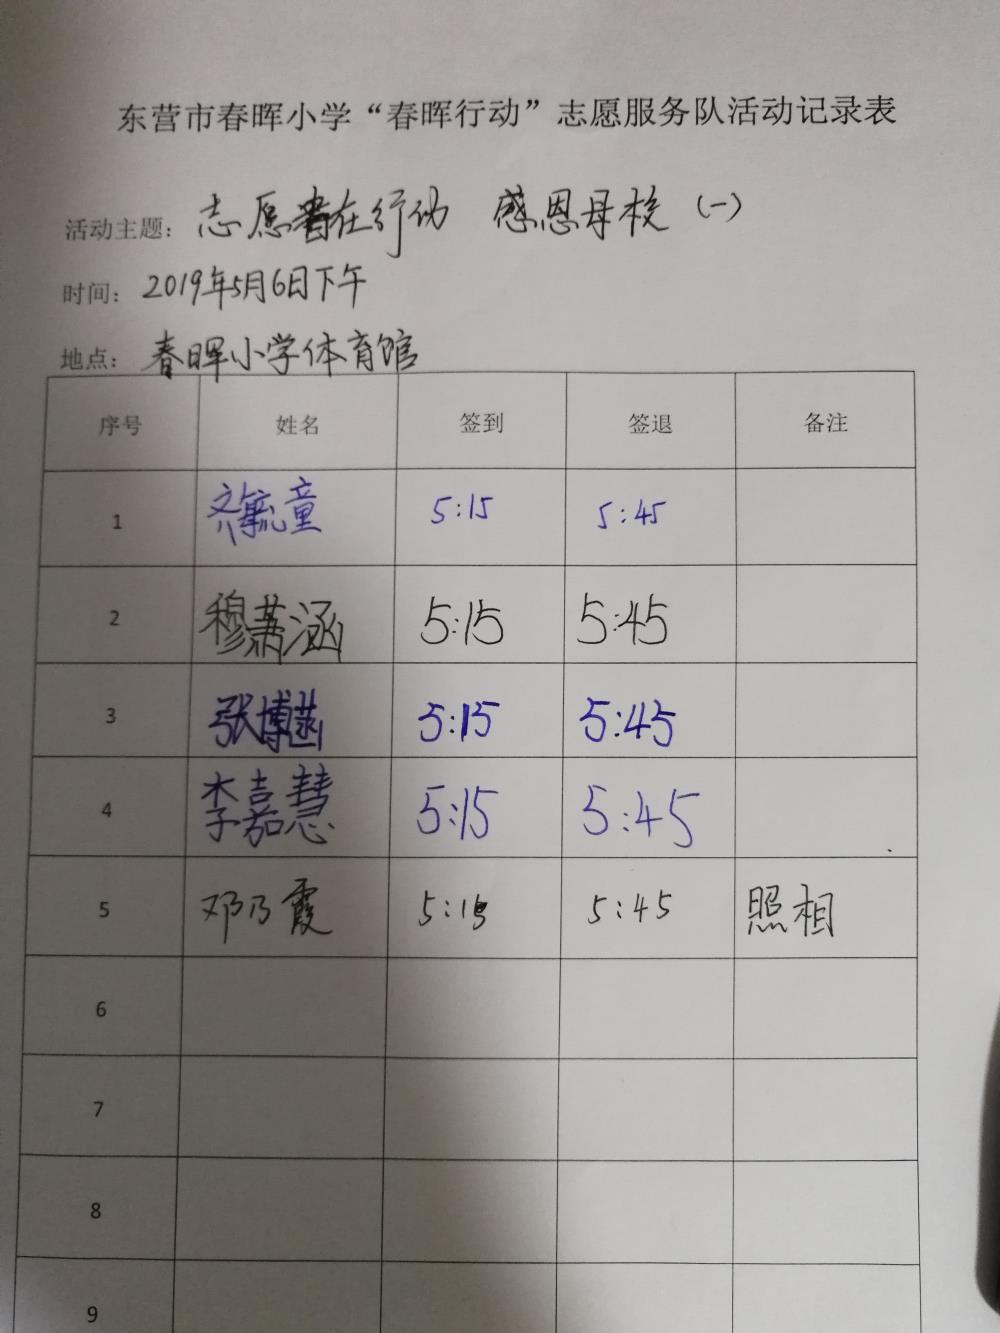 东营市春晖小学“春晖行动”志愿服务队活动记录表
活动主题：志愿者在行动 感恩母校（一）
时间：2019年5月6日下午
地点：春晖小学体育馆
序号 姓名 签到 签退 备注
1 齐毓童 5:15 5:45
2 穆萧涵 5:15 5:45
3 张博菡 5:15 5:45
4 李嘉慧 5:15 5:45
5 邓乃霞 5:15 5:45 照相
6
7
8
9